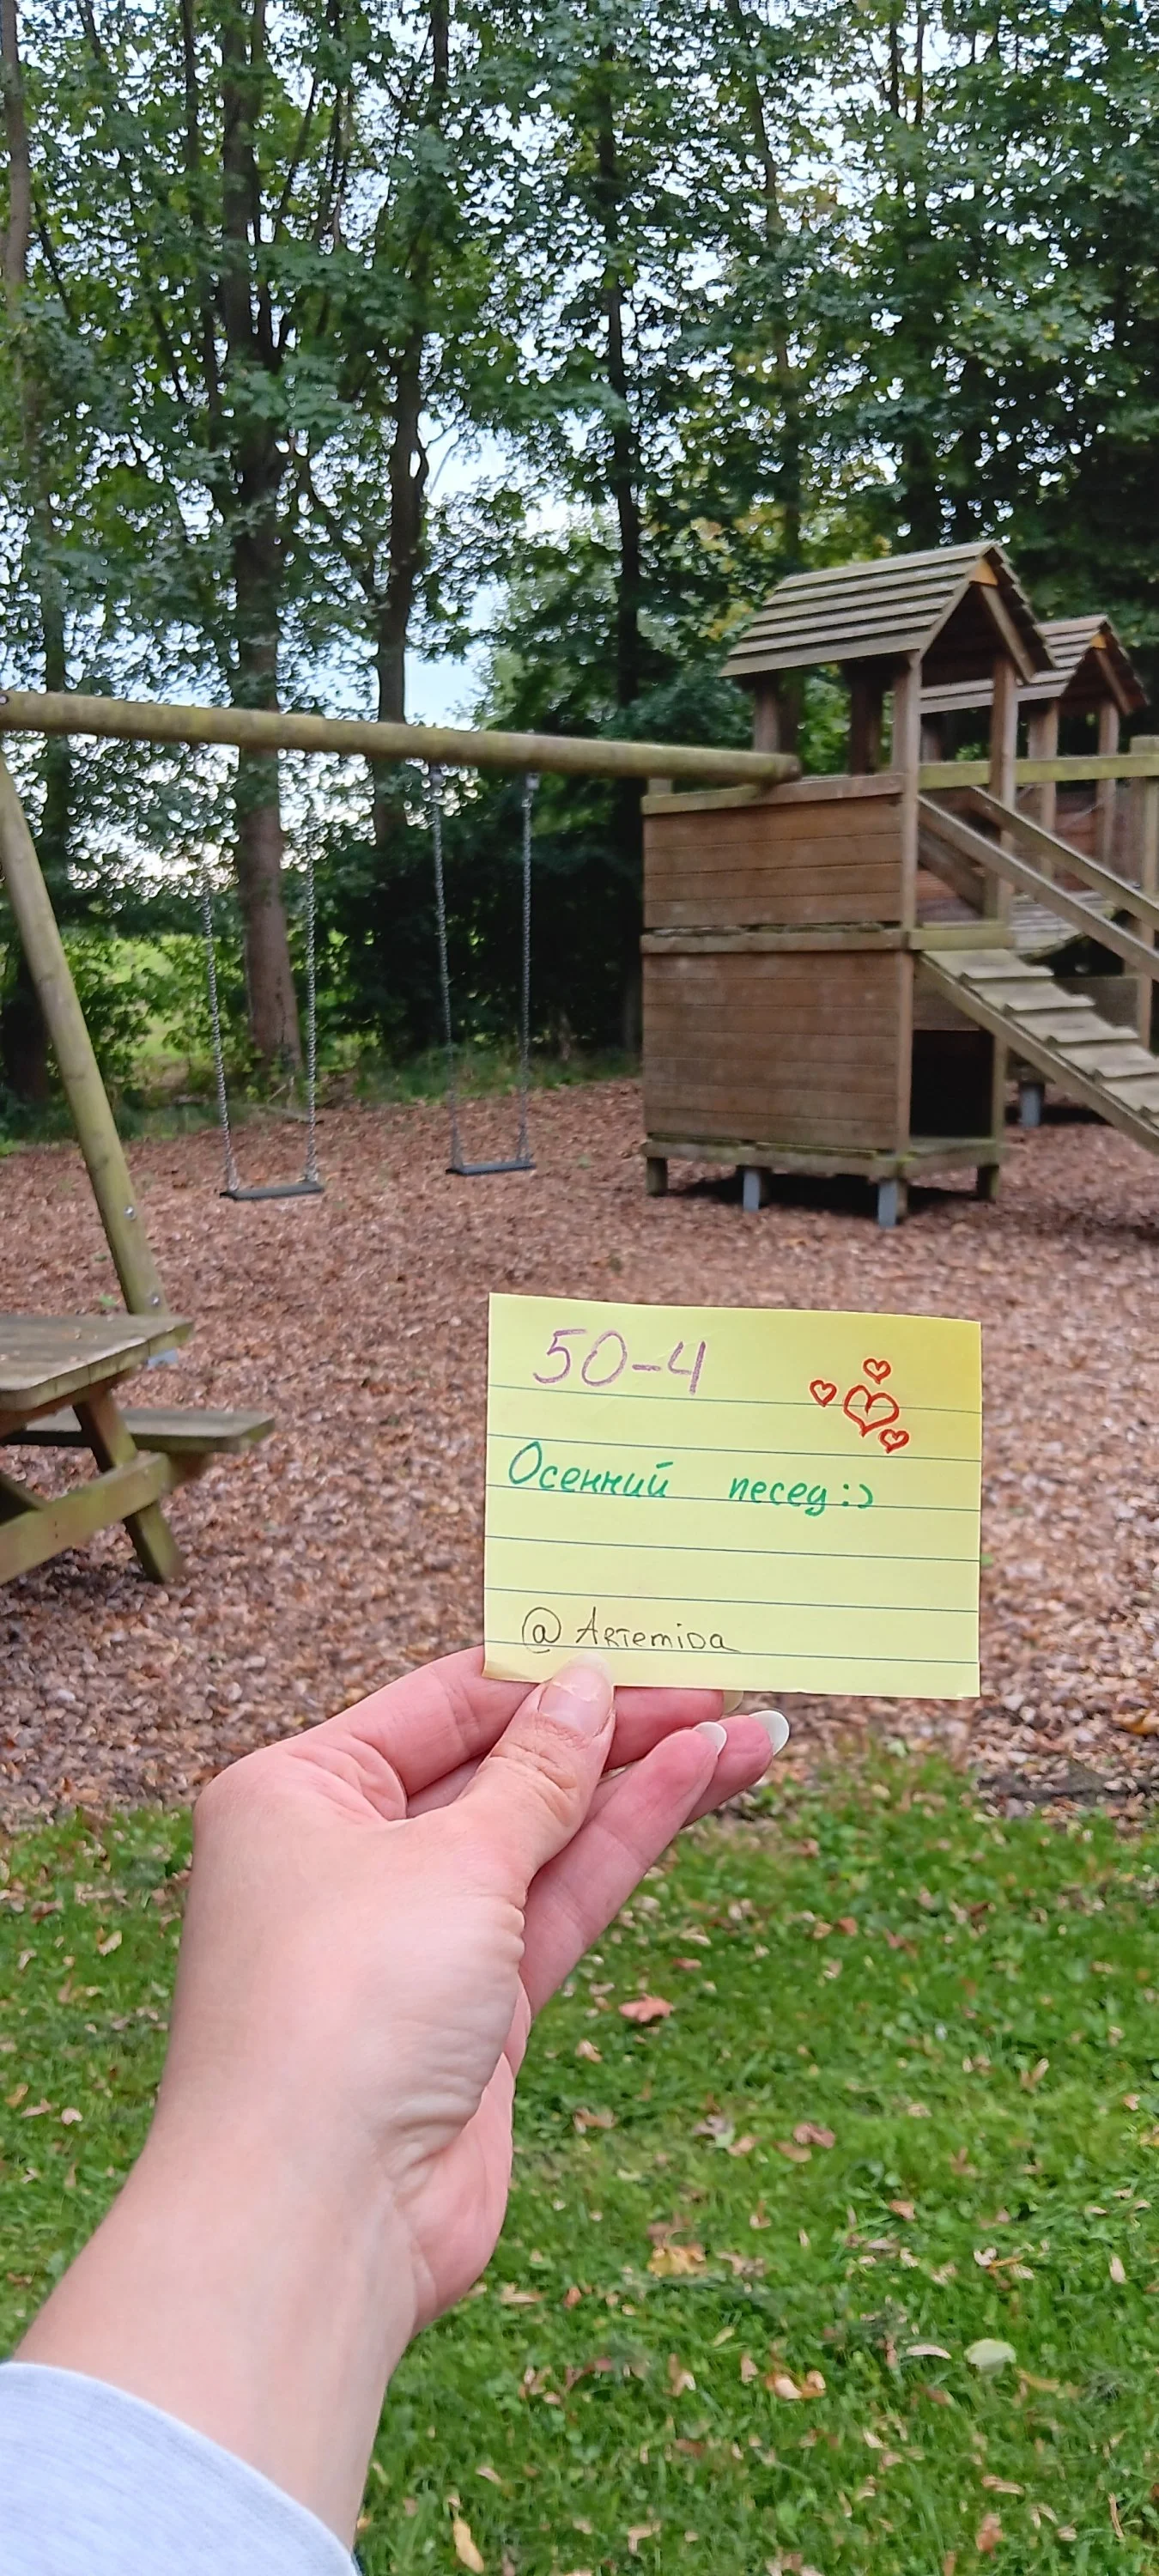 50-4
Осенний песец:)
@Artemida